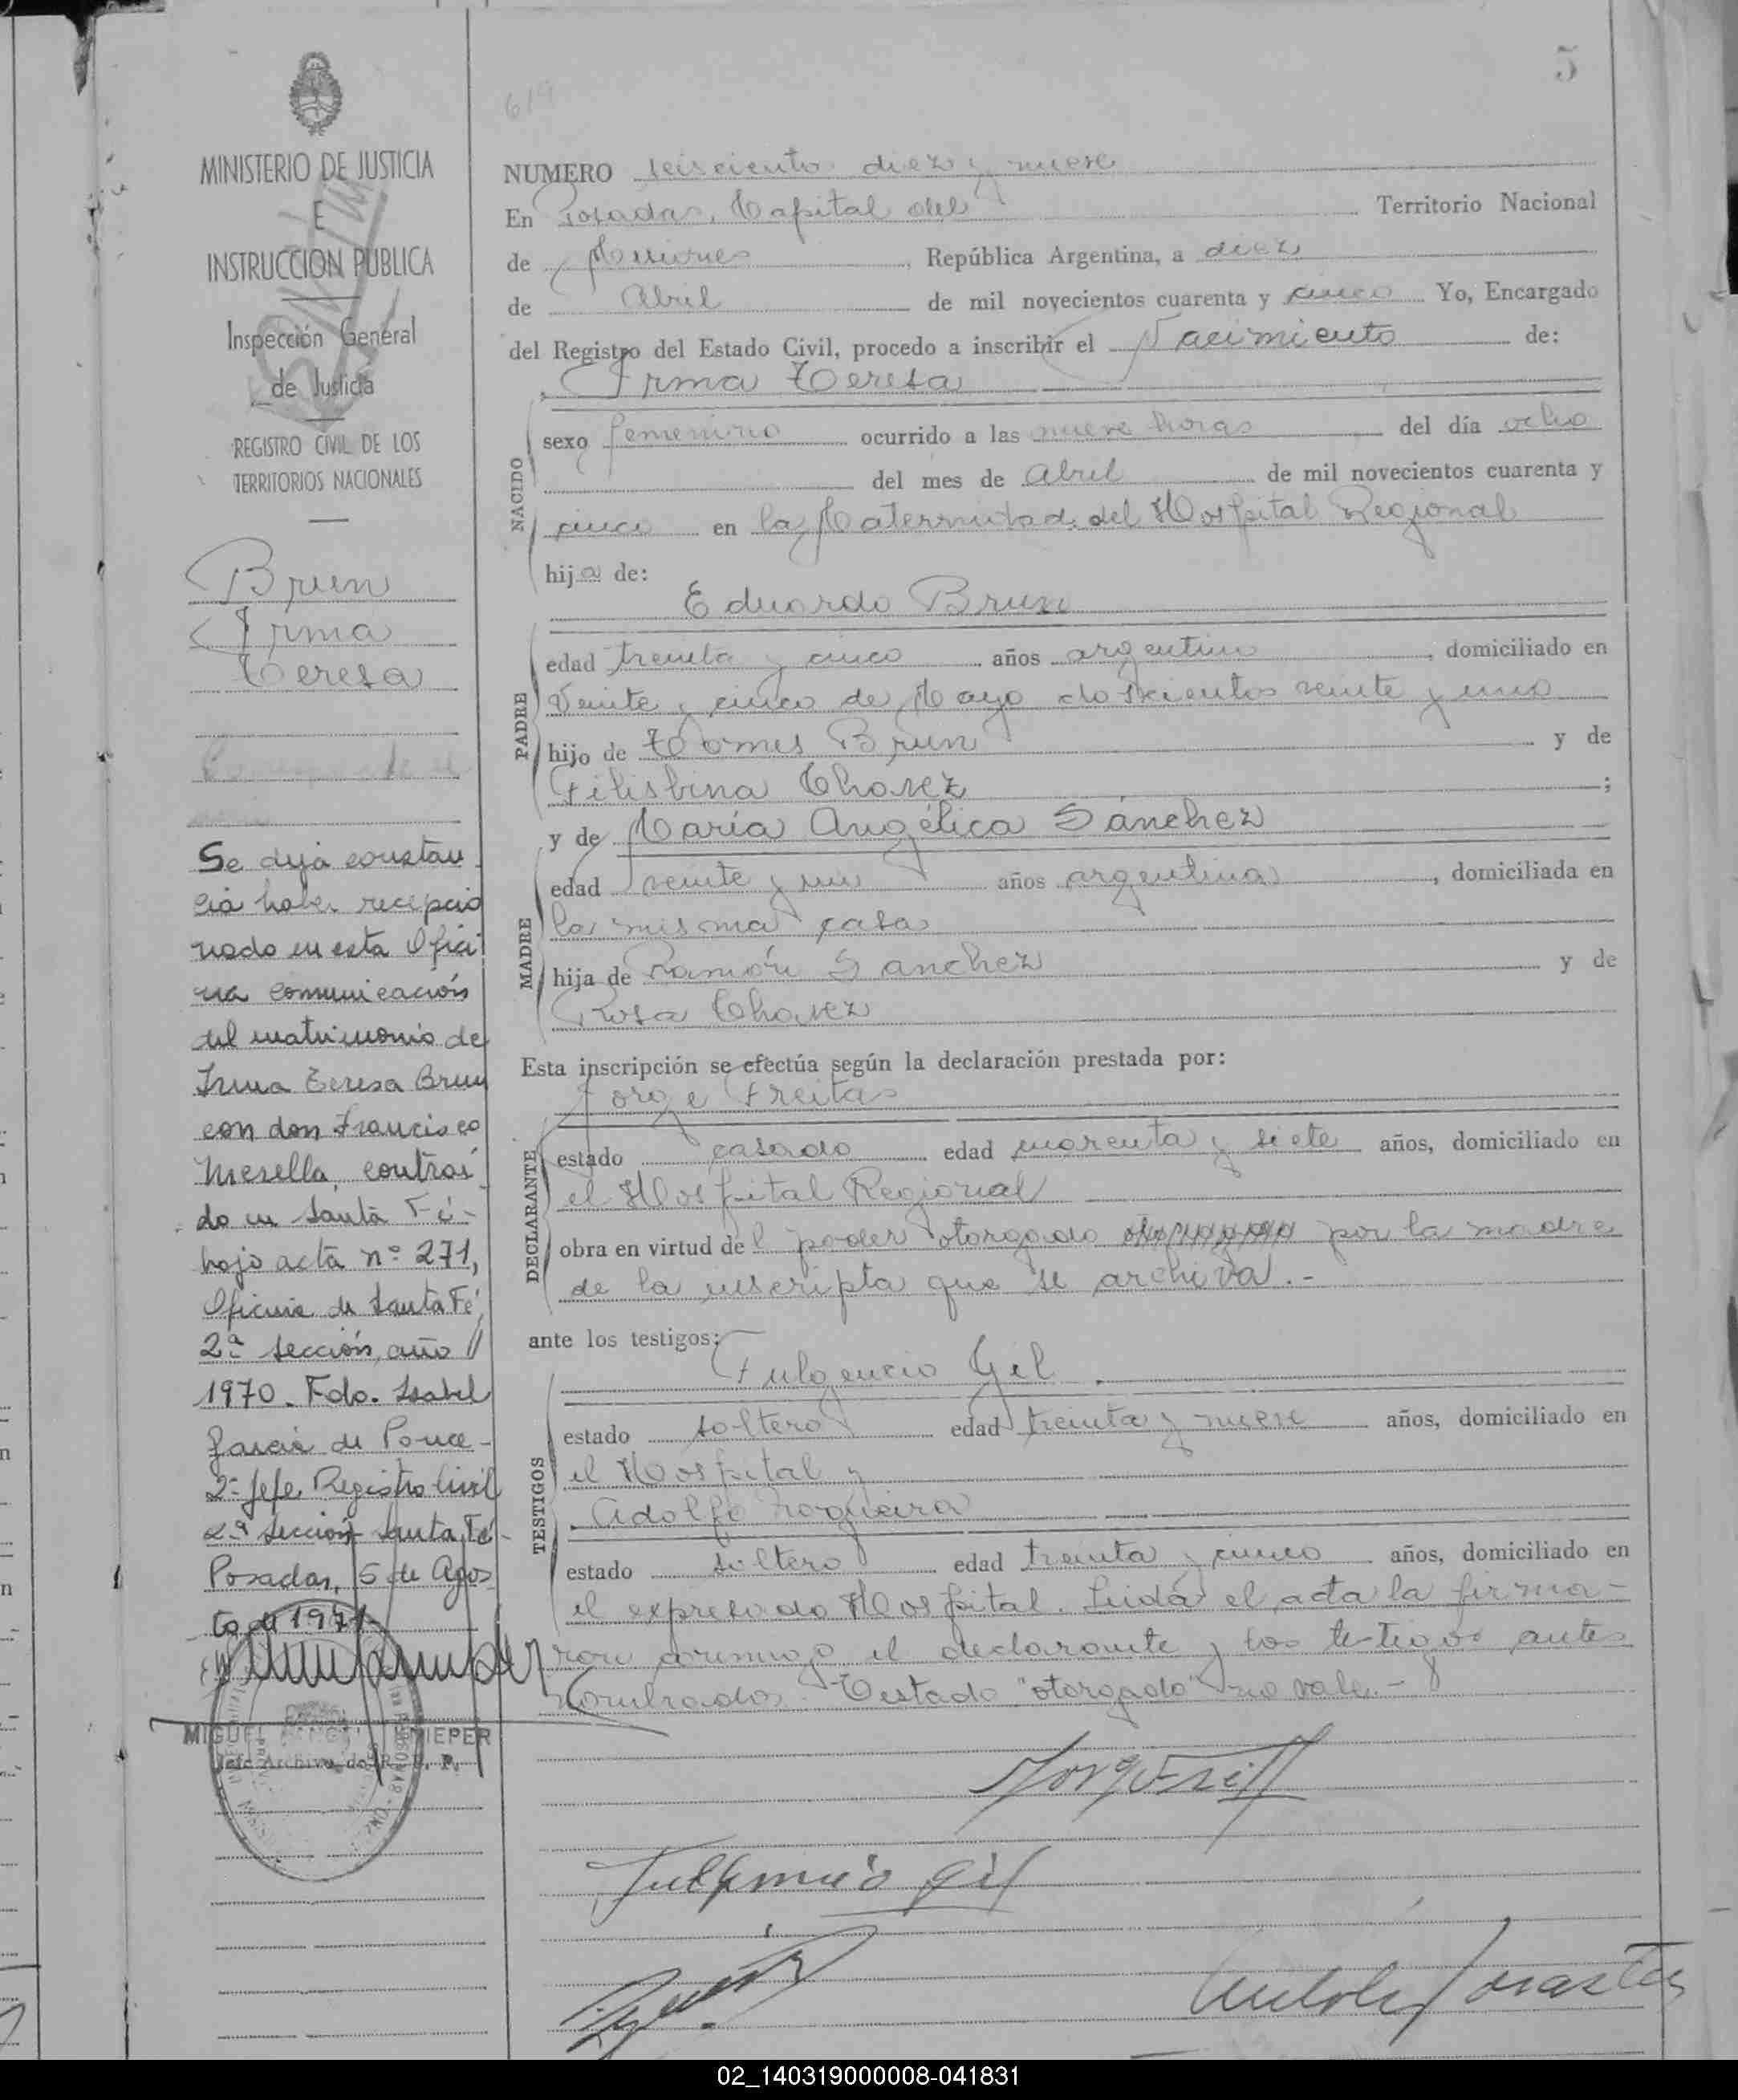 5
619
MINISTERIO DE JUSTICIA
E
INSTRUCCION PUBLICA
Inspección General
de Justicia
REGISTRO CIVIL DE LOS
TERRITORIOS NACIONALES
Brun
Irma
Teresa
Se deja constan
cia haber recepcio
nado en esta Ofici
na comunicación
del matrimonio de
Irma Teresa Brun
con don Francisco
Mesella, contraí
do en Santa Fé-
bajo acta nº 271,
Oficina de Santa Fé,
2ª Sección, año
1970. Fdo. Isabel
García de Ponce-
2º Jefe Registro Civil
2ª Sección Santa Fé-
Posadas, 5 de Agos
to de 1971
MIGUEL
Jefe Archivo de R. P.
NUMERO seisciento diez y nueve
En Posadas, Capital del Territorio Nacional
de Misiones, República Argentina, a diez
de Abril de mil novecientos cuarenta y cinco Yo, Encargado
del Registro del Estado Civil, procedo a inscribir el Nacimiento de:
Irma Teresa
NACIDO
sexo femenino ocurrido a las nueve horas del día ocho
del mes de Abril de mil novecientos cuarenta y
cinco en la Maternidad del Hospital Regional
hija de:
Eduardo Brun
PADRE
edad treinta y cinco años argentino, domiciliado en
Veinte y cinco de Mayo doscientos veinte y uno
hijo de Tomes Brun y de
Filisbina Chavez;
y de María Angélica Sánchez
MADRE
edad veinte y un años argentina, domiciliada en
la misma casa
hija de Ramón Sanchez y de
Rosa Chavez
Esta inscripción se efectúa según la declaración prestada por:
Jorge Freitas
DECLARANTE
estado casado edad cuarenta y siete años, domiciliado en
el Hospital Regional
obra en virtud del poder otorgado por la madre
de la inscripta que se archiva.-
ante los testigos:
Fulgencio Gil
TESTIGOS
estado soltero edad treinta y nueve años, domiciliado en
el Hospital y
Adolfo Nogueira
estado soltero edad treinta y cinco años, domiciliado en
el expresado Hospital. Leida el acta la firma-
ron conmigo el declarante y los testigos antes
nombrados. Testado "otorgado" no vale.-
Fulgencio Gil
02_140319000008-041831